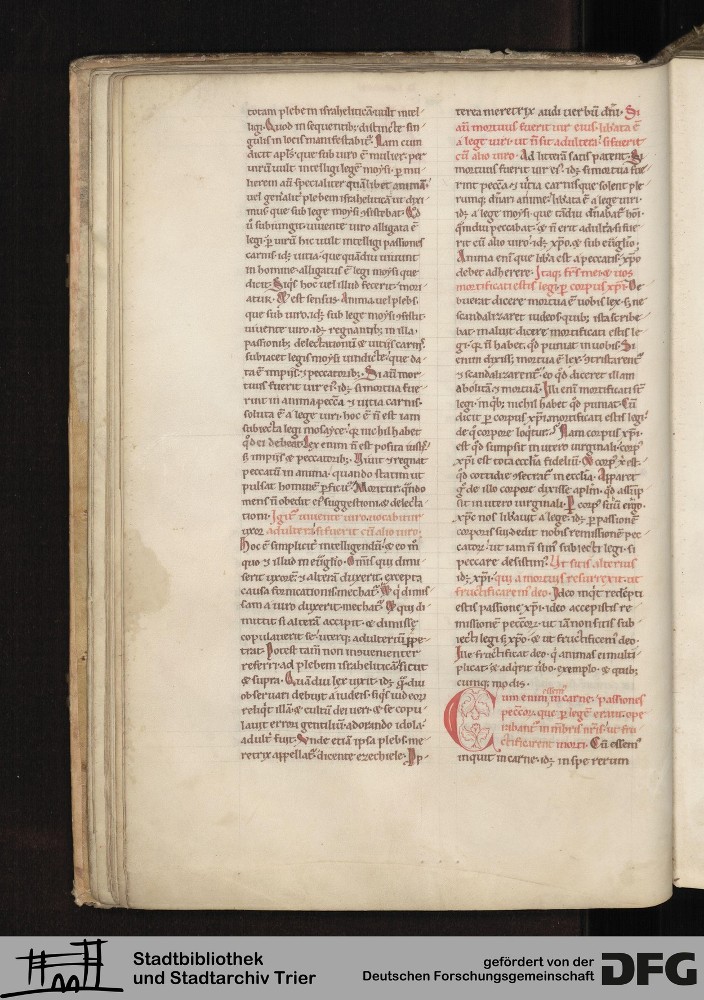 totam plebem israheliticā uult intel-
ligi. Quod in sequentib; distincte sin-
gulis in locis manifestabit'. Nam cum
dicit apl's. que sub uiro ē mulier. per
uirū uult intelligi legē moysi. p mu-
lierem aū specialiter quālibet animā.
uel genalit' plebem israheliticā ut dixi-
mus que sub lege moysi sistebat. Qđ
ū subiungit. uiuente uiro alligata ē
legi. p uirū hic uult intelligi passiones
carnis. idē uitia. que quādiu uiuunt
in homine alligatus ē legi moysi que
dicit. Siq's hoc uel illud fecerit. mori-
atur. Et est sensus. Anima uel plebs.
que sub uiro. idē sub lege moysi sistit.
uiuente uiro. idē regnantib; in illa
passionib; delectationū & uitijs carnis
subiacet legis moysi uindicte. que da-
ta ē impijs & peccatorib;. Si aū mor-
tuus fuerit uir ei'. idē si mortua fue-
rint in anima peccā & uitia carnis.
soluta ē a lege uiri. hoc ē n̄ est iam
subiecta legi mosayce. q nichil habet
qđ ei debeat. Lex enim n̄ est posita iusto
s; impijs & peccatorib;. Viuit & regnat
peccatū in anima. quando statim ut
pulsat hominē pficit'. Moritur. qn̄do
mens n̄ obedit ei' suggestioni & delecta-
tioni. Igit' uiuente uiro. uocabitur
uxor adultera si fuerit cū alio uiro.
Hoc ē simplicit' intelligendū. & eo mo
quo & illud in euglio. Omis qui dimi-
serit uxorē & alterā duxerit. excepta
causa fornicationis mechat'. & q dimis-
sam a uiro duxerit mechat'. & qui di-
mittit si alterā accipit. & dimisse
copulauerit se. uterq; adulteriū ppe-
trat. Potest tam̄ non inuenienter
referri ad plebem israheliticā. sicut
& supra. Quādiu lex uixit. idē q'diu
obseruari debuit a iudeis. siq's iudeor
reliq't illā & cultū dei ueri. & se copu-
lauit errori gentiliū adorando idola.
adult' fuit. Vnde etiā ipsa plebs me-
retrix appellat'. dicente ezechiele. Pp-
terea meretrix audi uerbū dn̄i. Si
aū mortuus fuerit uir eius. lib'ata ē
a lege uiri. ut n̄ sit adultera. si fuerit
cū alio uiro. Ad litterā satis patent. Si
mortuus fuerit uir ei'. idē si mortua fue-
rint peccā & uitia carnis que solent ple-
rumq; dn̄ari anime. lib'ata ē a lege uiri.
idē a lege moysi. que tādiu dn̄abat' hoi.
q'mdiu peccabat. & n̄ erit adult'a si fue-
rit cū alio uiro. idē xpo. & sub euglio.
Anima eni que lib'a est a peccatis. xpo
debet adherere. Itaq; frs mei & uos
mortificati estis legi. p corpus xpi. De-
buerat dicere mortua ē uobis lex. s; ne
scandalizaret iudeos. quib; ista scribe-
bat. maluit dicere mortificati estis le-
gi. q n̄ habet. qđ puniat in uobis. Si
enim dixiss; mortua ē lex. & tristarent'
& scandalizarent'. eo qđ diceret illam
abolitā & mortuā. Illi eni mortificati st
legi. in qb; nichil habet qđ puniat. Cū
dicit. p corpus xpi mortificati estis legi.
de q' corpore loq'tur. Nam corpus xpi.
est qđ sumpsit in utero uirginali. corp'
xpi est tota ecclia fideliū. & corp' xpi est.
qđ cottidie & secrat' in ecclia. Apparet
g° de illo corpore dixisse aplm̄. qđ assūp-
sit in utero uirginali. P corp' suū ergo
xpc nos lib'auit a lege. idē p passionē
corporis sui dedit nobis remissionē pec-
cator. ut iam n̄ sim' subiecti legi. si
peccare desistim'. Ut sitis alterius
idē xpi. qui a mortuis resurrexit. ut
fructificaremus deo. Ideo inq't redēpti
estis passione xpi. ideo accepistis re-
missionē peccor. ut iā non sitis sub-
iecti legi s; xpo. & ut fructificem' deo.
Ille fructificat deo. q' animas ei multi-
plicat. & adq'rit u'bo. exemplo. & quib;
cumq; modis.
Cum enim essem' in carne. passiones
peccor. que p legē erant. ope-
rabant' in mēbris nr̄is. ut fru-
ctificarent morti. Cū essem'
inquit in carne. idē in spe rerum
Stadtbibliothek
und Stadtarchiv Trier
gefördert von der
Deutschen Forschungsgemeinschaft
DFG